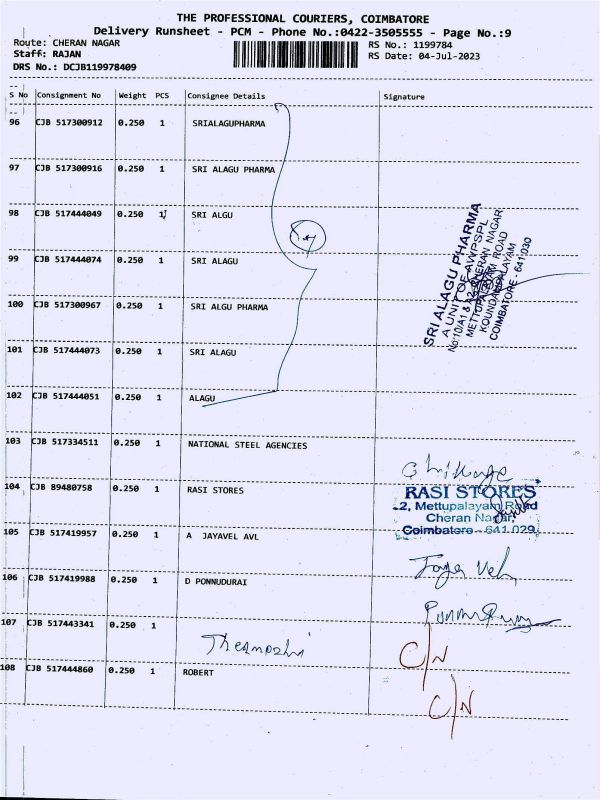 THE PROFESSIONAL COURIERS, COIMBATORE
Delivery Runsheet - PCM - Phone No.:0422-3505555 - Page No.:9
Route: CHERAN NAGAR RS No.: 1199784
Staff: RAJAN RS Date: 04-Jul-2023
DRS No.: DCJB119978409
S No Consignment No Weight PCS Consignee Details Signature
96 CJB 517300912 0.250 1 SRIALAGUPHARMA
97 CJB 517300916 1 0.250 SRI ALAGU PHARMA
98 CJB 517444049 0.250 1 SRI ALGU
99 CJB 517444074 0.250 1 SRI ALAGU
100 CJB 517300967 0.250 1 SRI ALGU PHARMA
101 CJB 517444073 0.250 1 SRI ALAGU
102 CJB 517444051 0.250 1 ALAGU
SRI ALAGU PHARMA
A UNIT OF AWPSPL
CHERAN NAGAR
METTUPALAYAM ROAD
KOUNDAMPALAYAM
COIMBATORE - 641 030
103 CJB 517334511 0.250 1 NATIONAL STEEL AGENCIES
104 CJB 89480758 0.250 1 RASI STORES
RASI STORES
2, Mettupalayam Road
Cheran Nagar,
Coimbatore - 641 029
105 CJB 517419957 0.250 1 A JAYAVEL AVL
106 CJB 517419988 0.250 1 D PONNUDURAI
107 CJB 517443341 0.250 1
C/N
108 CJB 517444860 0.250 1 ROBERT
C/N